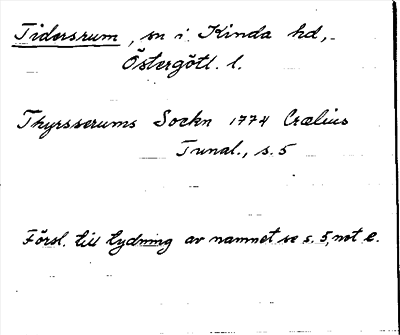 Tidersrum, sn i Kinda hd,
Östergötl. l.
Thyrsserums Sockn 1774 Crælius
Tunal., s. 5
Försl. till tydning av namnet se s. 5, not e.